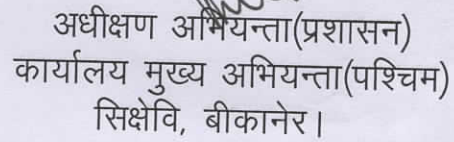 अधीक्षण अभियन्ता(प्रशासन)
कार्यालय मुख्य अभियन्ता(पश्चिम)
सिक्षेवि, बीकानेर।